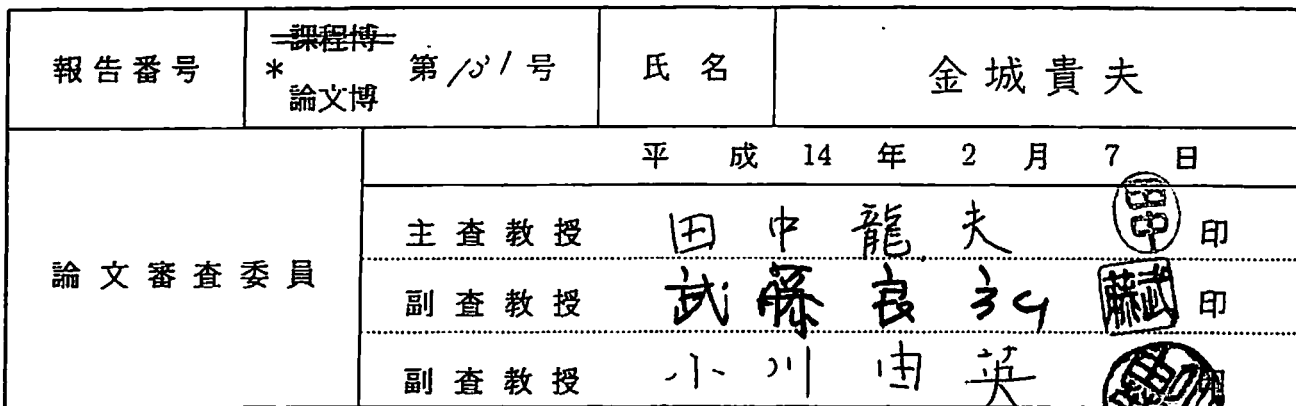 報告番号 * 課程博 論文博 第151号 氏名 金城貴夫
論文審査委員
平成 14 年 2 月 7 日
主査教授 田中龍夫 田中 印
副査教授 武藤良弘 武藤 印
副査教授 小川由英 印